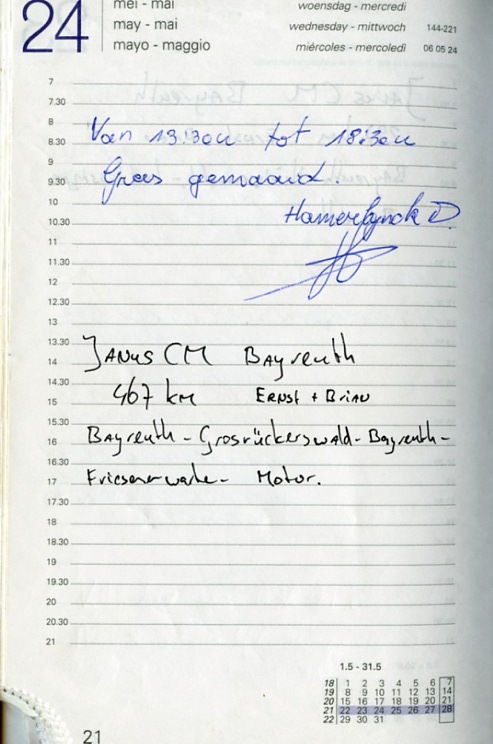 24
mei - mai
may - mai
mayo - maggio
woensdag - mercredi
wednesday - mittwoch 144-221
miércoles - mercoledì 06 05 24
7
7.30
8
8.30 Van 13:30u tot 18:30u
9
9.30 Gras gemaaid.
10
10.30
11
11.30
12
12.30
13
13.30
14 JANUS CM Bayreuth
14.30
15 467 km ERNST + BRIAN
15.30
16 Bayreuth - Grosrückerswald - Bayreuth -
16.30
17 Friesenerwarte - Motor.
17.30
18
18.30
19
19.30
20
20.30
21
1.5 - 31.5
18 1 2 3 4 5 6 7
19 8 9 10 11 12 13 14
20 15 16 17 18 19 20 21
21 22 23 24 25 26 27 28
22 29 30 31
21